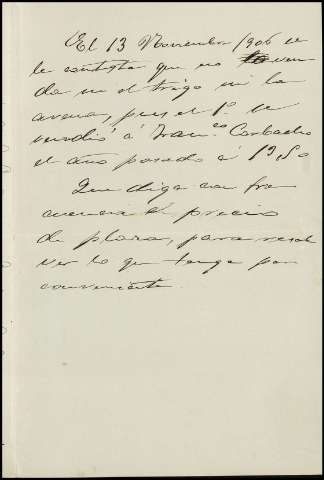 El 13 Noviembre 1906 se
le contesta que no ven
da ni el trigo ni la
avena, pues el 1º se
vendió á Franco Carbacho
el año pasado á 19,50
Que diga con fre
cuencia el precio
de plaza, para resol
ver lo que tenga por
conveniente.